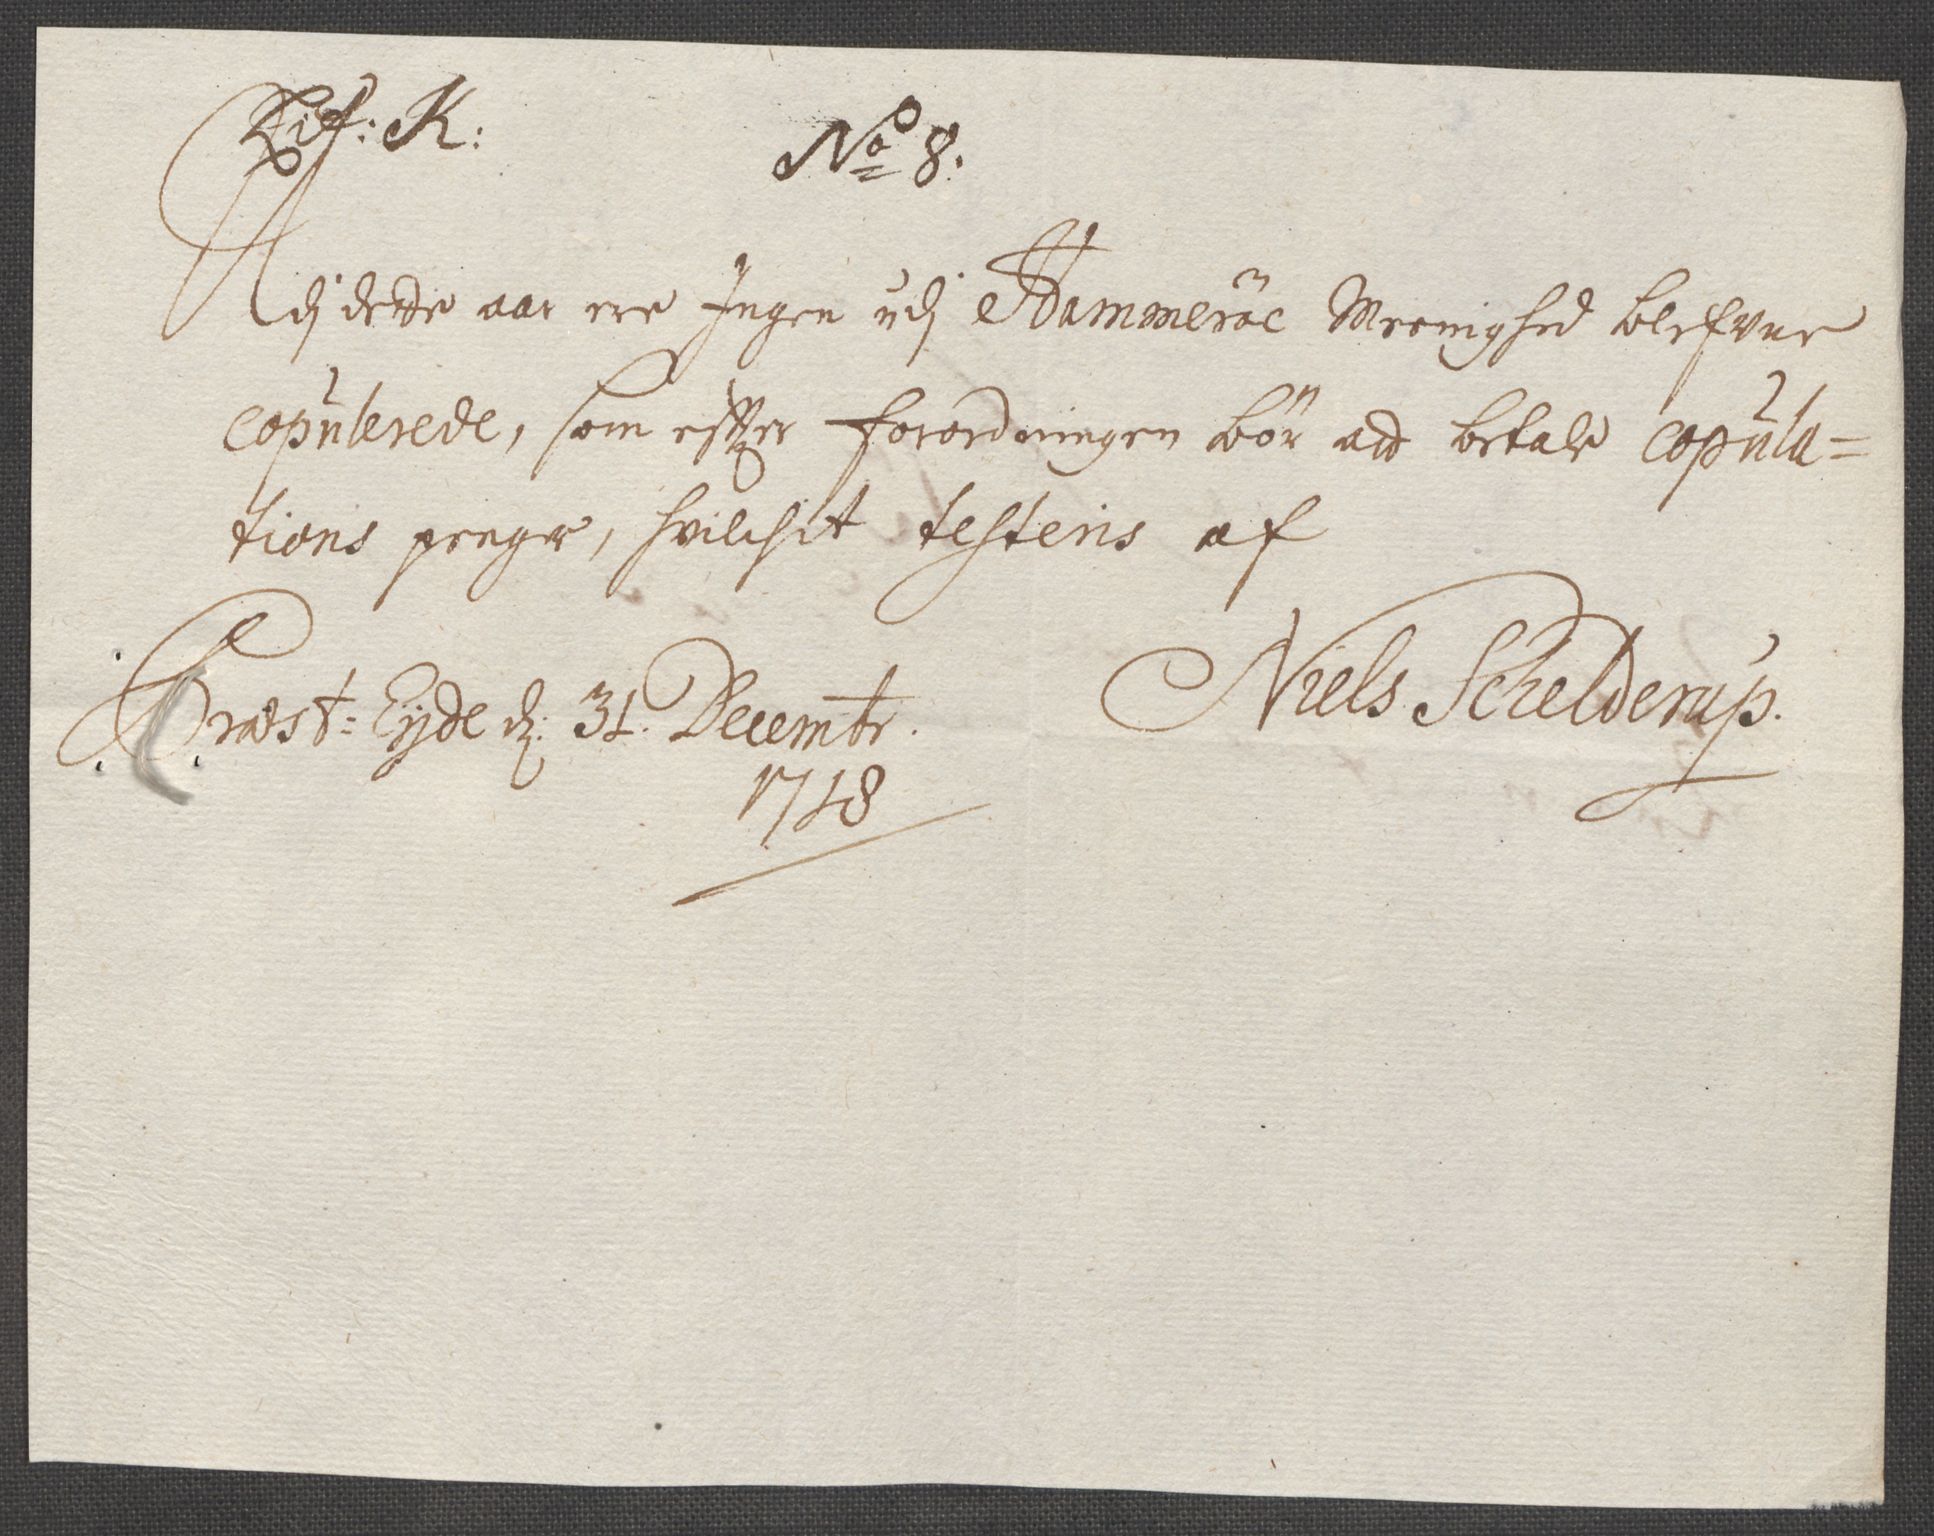 Lit: K: No 8.
Udj dette aar ere Ingen udj Hammeröe Meenighed blefvne
copulerede, som effter forordningen bör add betale copula=
tions penger, hvilchet testeris af
Præst= Eyde d: 31. Decembr. Niels Schelderup.
1718